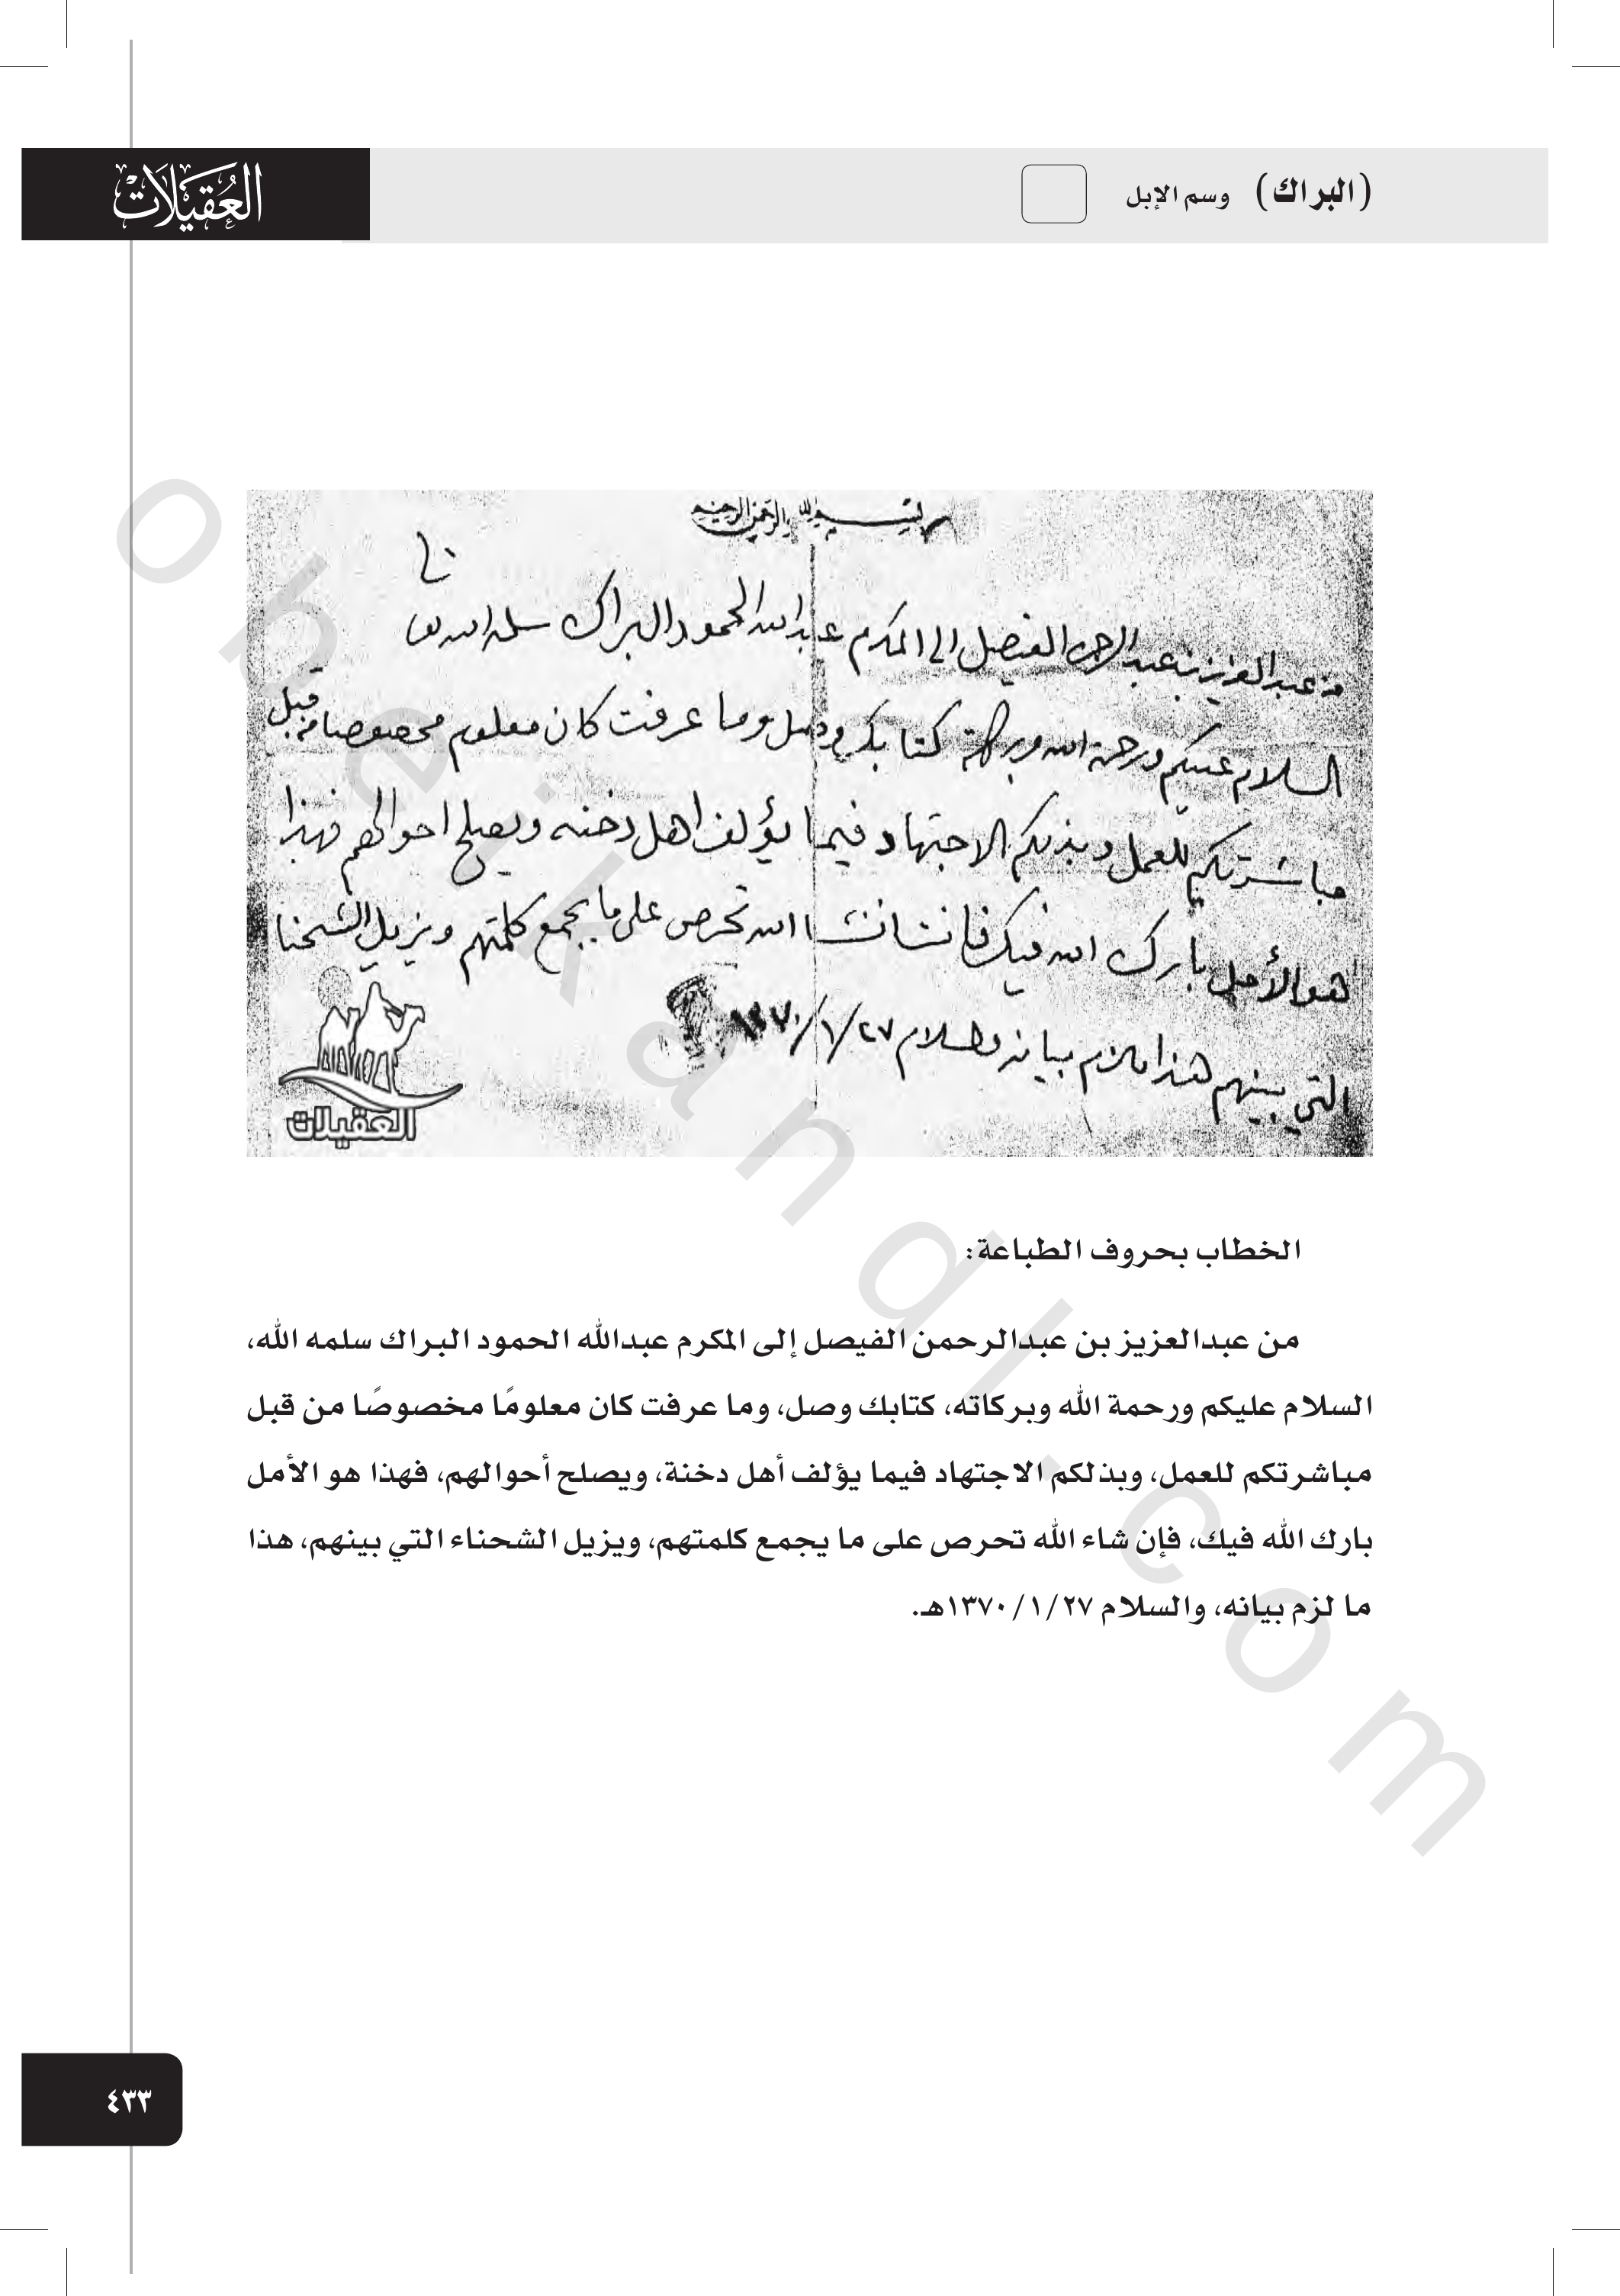 (البراك) وسم الإبل
العقيلات
بسم الله الرحمن الرحيم
من عبدالعزيز بن عبدالرحمن الفيصل الى المكرم عبدالله الحمود البراك سلمه الله
السلام عليكم ورحمة الله وبركاته كتابكم وصل وما عرفت كان معلوم مخصوصا من قبل
مباشرتكم للعمل وبذلكم الاجتهاد فيما يؤلف اهل دخنه ويصلح احوالهم فهذا
هو الأمل بارك الله فيك فانت انشا الله تحرص على ما يجمع كلمتهم ويزيل الشحنا
التي بينهم هذا مالزم بيانه والسلام ٢٧/ ١/ ١٣٧٠
العقيلات
الخطاب بحروف الطباعة:
من عبدالعزيز بن عبدالرحمن الفيصل إلى المكرم عبدالله الحمود البراك سلمه الله،
السلام عليكم ورحمة الله وبركاته، كتابك وصل، وما عرفت كان معلومًا مخصوصًا من قبل
مباشرتكم للعمل، وبذلكم الاجتهاد فيما يؤلف أهل دخنة، ويصلح أحوالهم، فهذا هو الأمل
بارك الله فيك، فإن شاء الله تحرص على ما يجمع كلمتهم، ويزيل الشحناء التي بينهم، هذا
ما لزم بيانه، والسلام ٢٧/ ١/ ١٣٧٠هـ.
٤٣٣
obeikandl.com